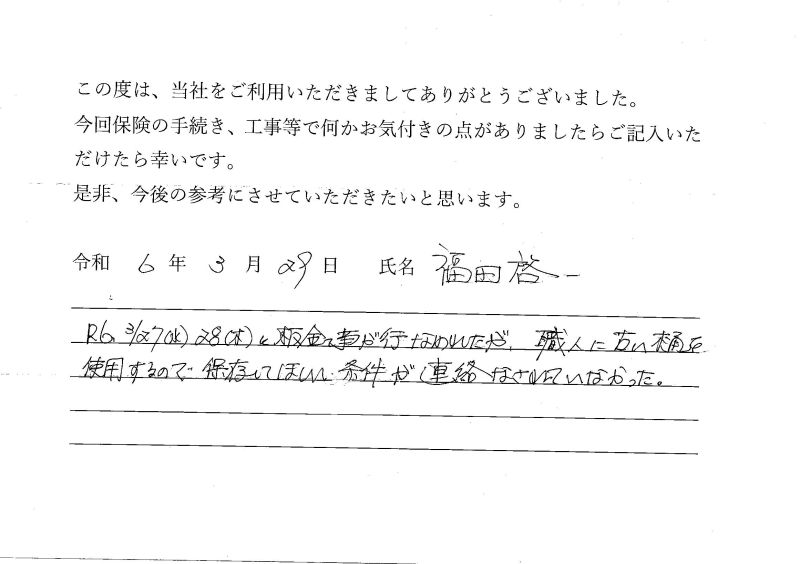 この度は、当社をご利用いただきましてありがとうございました。
今回保険の手続き、工事等で何かお気付きの点がありましたらご記入いた
だけたら幸いです。
是非、今後の参考にさせていただきたいと思います。
令和 6 年 3 月 29 日 氏名 福田啓一
R6. 3/27(水) 28(木)と板金工事が行なわれたが、職人に古い樋を
使用するので保存してほしい条件が連絡なされていなかった。